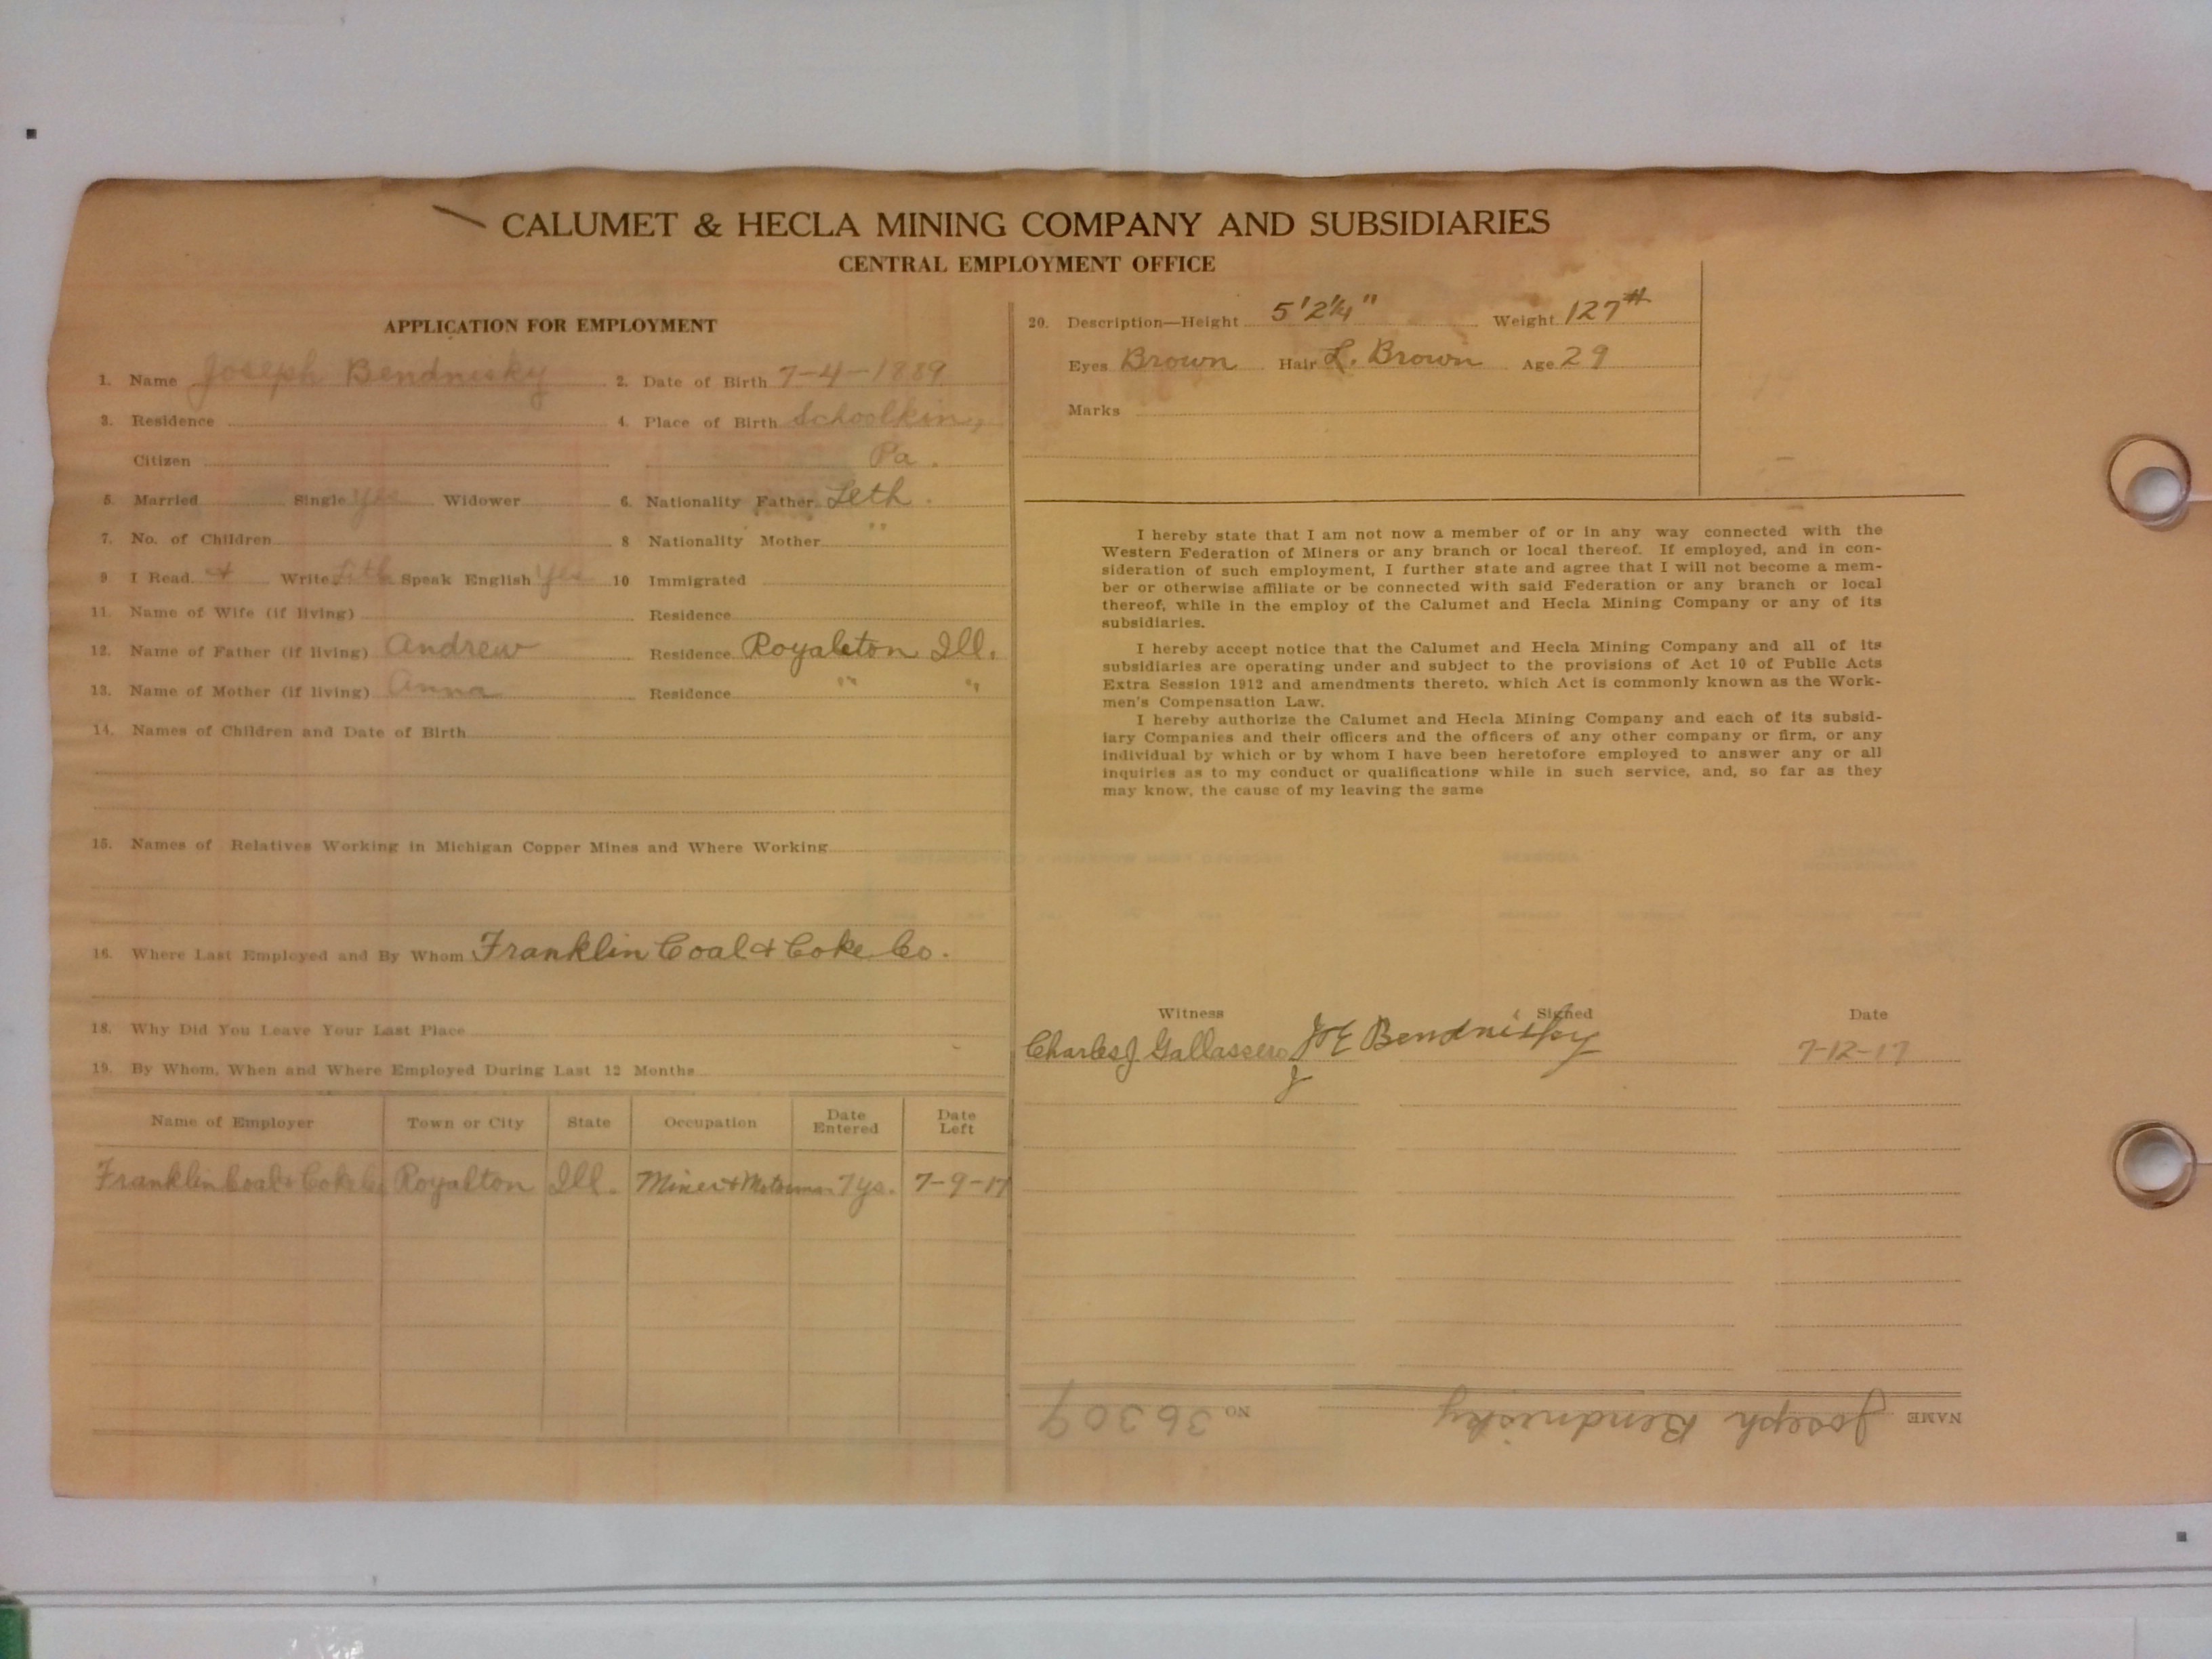 CALUMET & HECLA MINING COMPANY AND SUBSIDIARIES
CENTRAL EMPLOYMENT OFFICE
APPLICATION FOR EMPLOYMENT
1. Name Joseph Bendnisky 2. Date of Birth 7-4-1889
3. Residence 4. Place of Birth Schoolkin,
Citizen Pa.
5. Married Single Yes Widower 6. Nationality Father Leth.
7. No. of Children 8 Nationality Mother " "
9 I Read & Write Leth Speak English Yes 10 Immigrated
11. Name of Wife (if living) Residence
12. Name of Father (if living) Andrew Residence Royalton Ill.
13. Name of Mother (if living) Anna Residence " " " "
14. Names of Children and Date of Birth
15. Names of Relatives Working in Michigan Copper Mines and Where Working
16. Where Last Employed and By Whom Franklin Coal & Coke Co.
18. Why Did You Leave Your Last Place
19. By Whom, When and Where Employed During Last 12 Months
Name of Employer Town or City State Occupation Date Entered Date Left
Franklin Coal & Coke Co Royalton Ill. Miner & Motorman 7 ys. 7-9-17
20. Description—Height 5'2¼" Weight 127#
Eyes Brown Hair L. Brown Age 29
Marks
I hereby state that I am not now a member of or in any way connected with the
Western Federation of Miners or any branch or local thereof. If employed, and in con-
sideration of such employment, I further state and agree that I will not become a mem-
ber or otherwise affiliate or be connected with said Federation or any branch or local
thereof, while in the employ of the Calumet and Hecla Mining Company or any of its
subsidiaries.
I hereby accept notice that the Calumet and Hecla Mining Company and all of its
subsidiaries are operating under and subject to the provisions of Act 10 of Public Acts
Extra Session 1912 and amendments thereto, which Act is commonly known as the Work-
men's Compensation Law.
I hereby authorize the Calumet and Hecla Mining Company and each of its subsid-
iary Companies and their officers and the officers of any other company or firm, or any
individual by which or by whom I have been heretofore employed to answer any or all
inquiries as to my conduct or qualifications while in such service, and, so far as they
may know, the cause of my leaving the same
Witness Signed Date
Charles J Gallassero Joe Bendnisky 7-12-17
NAME Joseph Bendnisky NO 36309